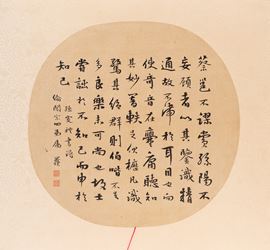 蔡邕不謬賞孫陽不
妄顧者以其鑒識精
通故不滯於耳目也向
使奇音在爨庸聽
其妙響伏櫪凡識
驚其絕群則伯喈不足
多良樂未可尚也士
於不知己而申於
知己
孫虔禮書譜
四弟屬